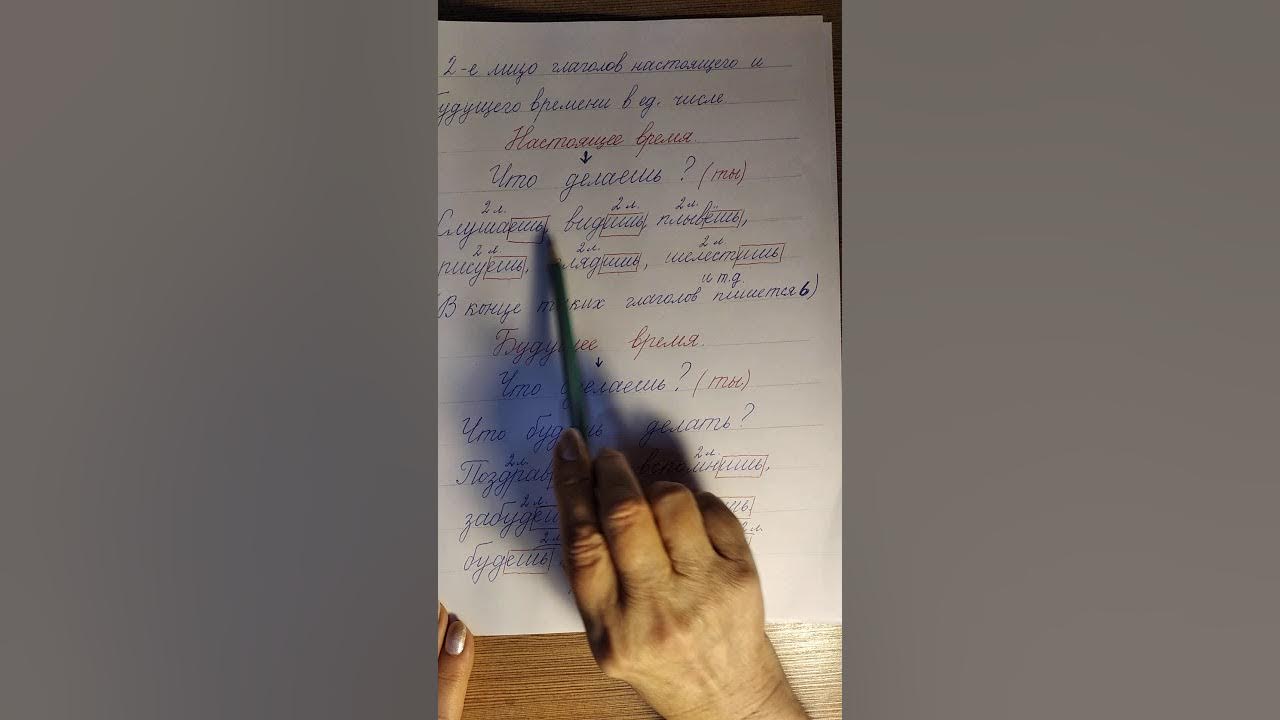 2-е лицо глаголов настоящего и
будущего времени в ед. числе
Настоящее время
Что делаешь? (ты)
2 л. 2 л. 2 л.
Слушаешь, видишь, плывёшь,
2 л. 2 л. 2 л.
рисуешь, глядишь, шелестишь
и т.д.
(В конце таких глаголов пишется ь)
Будущее время.
Что сделаешь? (ты)
Что будешь делать?
2 л. 2 л.
вспомнишь,
2 л.
2 л. 2 л.
будешь